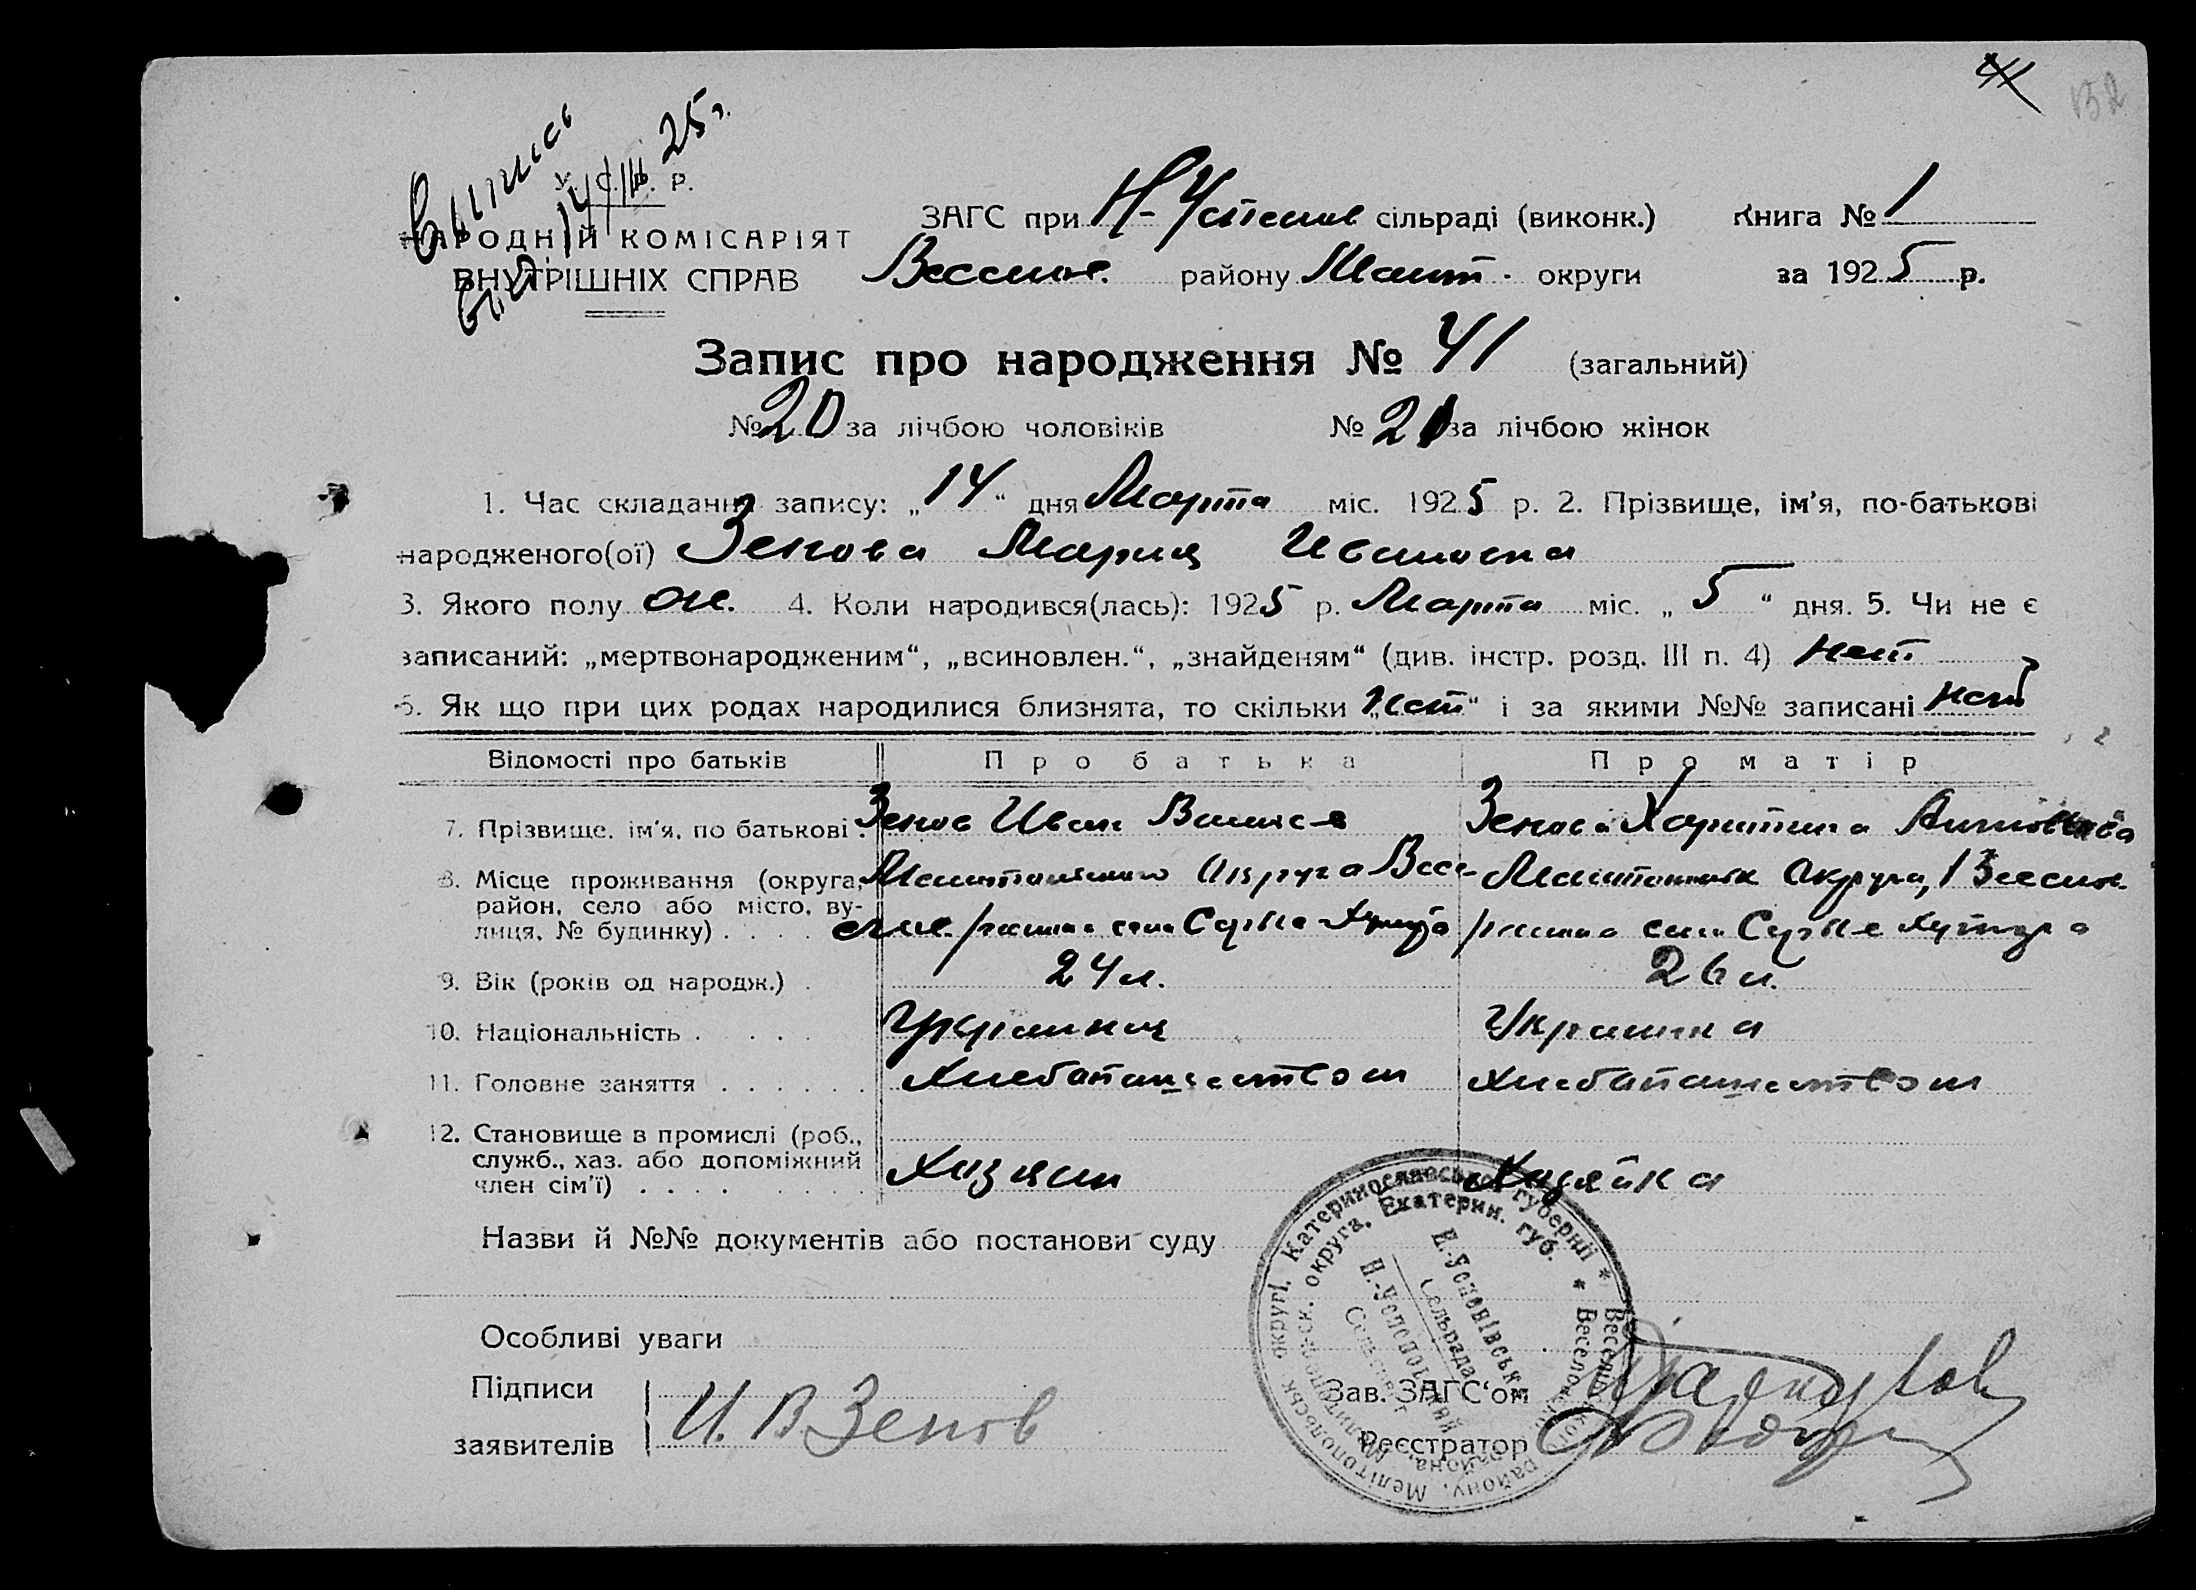 132
Выпись
14/III 25 г.
У. С. Р. Р.
НАРОДНІЙ КОМІСАРІЯТ
ВНУТРІШНІХ СПРАВ
ЗАГС при Н-Успенов сільраді (виконк.) Книга № 1
Веселов. району Мелит. округи за 1925 р.
Запис про народження № 41 (загальний)
№ 20 за лічбою чоловіків № 21 за лічбою жінок
1. Час складання запису: „14“ дня Марта міс. 1925 р. 2. Прізвище, ім'я, по-батькові
народженого(ої) Зенова Мария Ивановна
3. Якого полу же. 4. Коли народився(лась): 1925 р. Марта міс. „5“ дня. 5. Чи не є
записаний: „мертвонародженим“, „всиновлен.“, „знайденям“ (див. інстр. розд. III п. 4) Нет
6. Як що при цих родах народилися близнята, то скільки „Нет“ і за якими №№ записані нет
Відомості про батьків Про батька Про матір
7. Прізвище, ім'я, по батькові . Зенов Иван Зенова Харитина
8. Місце проживання (округа, Мелитопольского Округа Весе- Округа,
район, село або місто, ву-
лиця, № будинку) . . . .
9. Вік (років од народж.) . 24 л. 26 л.
10. Національність . . . . Украинец Украинка
11. Головне заняття . . . . . . Хлебопашеством Хлебопашеством
12. Становище в промислі (роб.,
служб., хаз. або допоміжний Хозяин Хозяйка
член сім'ї) . . . .
Назви й №№ документів або постанови суду
Особливі уваги
Підписи
заявителів И. В Зенов
Зав. ЗАГС'ом
Реєстратор
Катеринославської губернії * Веселівського району, Мелітопольськ. округі,
Екатерин. губ. * Веселовского района, Мелитопольск. округа,
Н.-Успенівська
Сельрада
Н.-Успеновский
Сельсовет